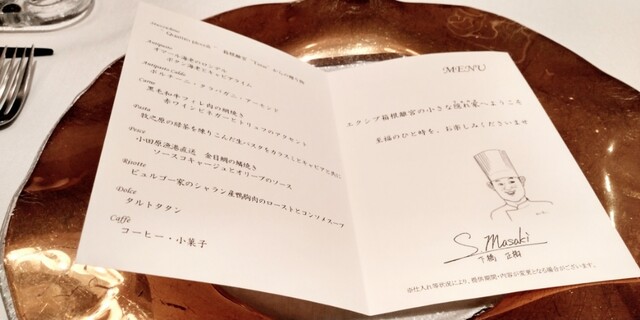 Antipasto
オマール海老のロンデル
ボタン海老とキャビアライム
Antipasto Caldo
ポルチーニ・タラバガニ・アーモンド
Carne
黒毛和牛フィレ肉の鍋焼き
赤ワインビネガーとトリュフのアクセント
Pasta
牧之原の緑茶を練りこんだ生パスタをカラスミとキャビアと共に
Pesce
小田原漁港直送 金目鯛の鱗焼き
ソースコキャージュとオリーブのソース
Risotto
ビュルゴー家のシャラン産鴨胸肉のローストとコンソメスープ
Dolce
タルトタタン
Caffè
コーヒー・小菓子
MENU
エクシブ箱根離宮の小さな隠れ家へようこそ
至福のひと時を、お楽しみくださいませ
S. Masaki
下橋 正樹
※仕入れ等状況により、提供期間・内容が変更となる場合がございます。